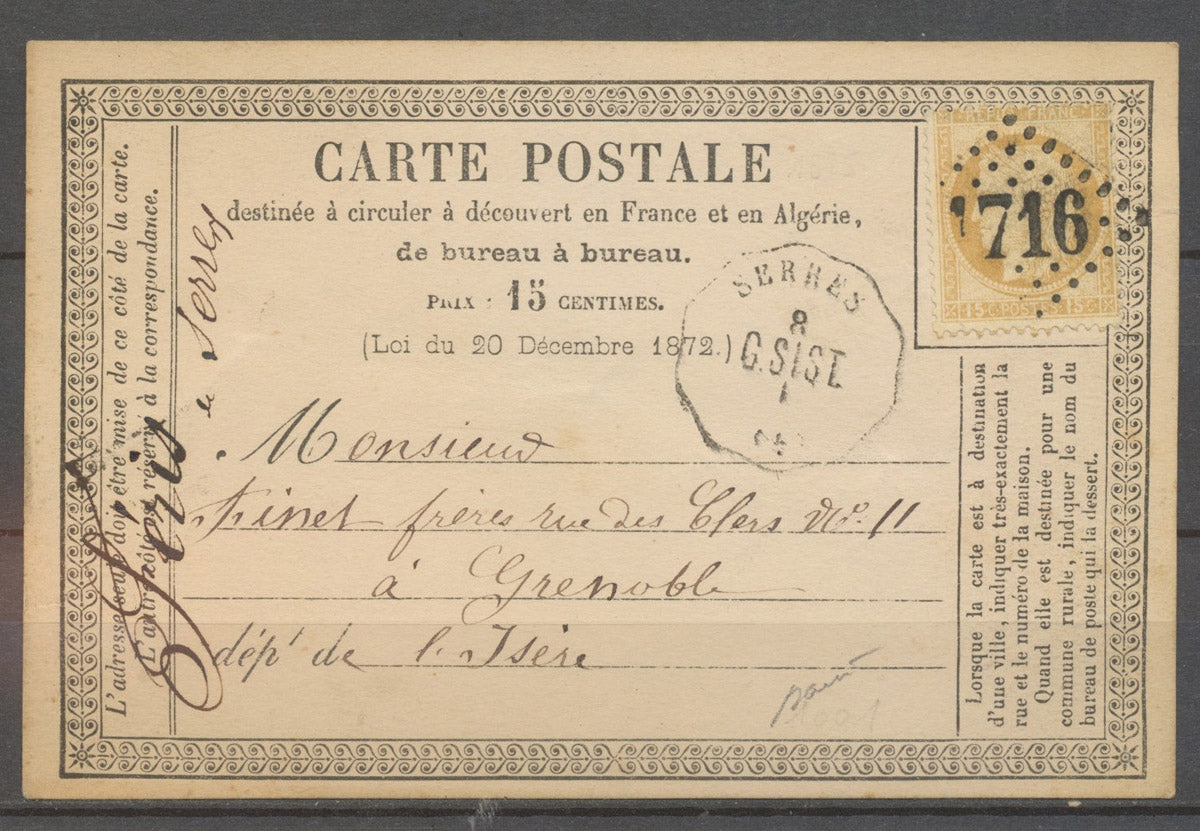 CARTE POSTALE
destinée à circuler à découvert en France et en Algérie,
de bureau à bureau.
PRIX : 15 CENTIMES.
(Loi du 20 Décembre 1872.)
RÉPUB. FRANC.
1716
15 C. POSTES 15 C.
SERRES
8
G.SIST.
1
Monsieur
Finet frères rue des Clers No. 11
à Grenoble
dépt de l'Isère
L'adresse seule doit être mise de ce côté de la carte.
L'autre côté est réservé à la correspondance.
de Serres
Lorsque la carte est à destination
d'une ville, indiquer très-exactement la
rue et le numéro de la maison.
Quand elle est destinée pour une
commune rurale, indiquer le nom du
bureau de poste qui la dessert.